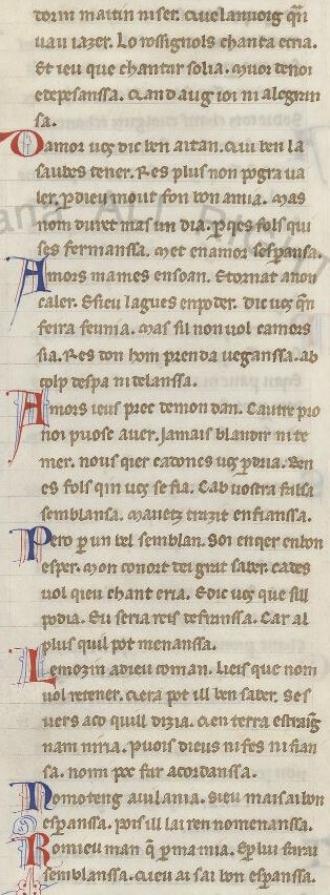 dorm maitin niser. Cuuelanuoig qñ
uau iazer. Lo rossignols chanta eria.
Et ieu que chantar solia. Muor denoi
etepesanssa. Cand aug ioi ni alegran
sa.
Damor uꝫ dic ben aitan. Qui ben la
saubes tener. Res plus non pogra ua
ler. ꝑdieu mout fon bon amia. Mas
nom duret mas un dia. ꝑqes fols qui
ses fermanssa. Met enamor sesꝑansa.
Amors mames ensoan. Etornat anon
caler. Esieu lagues enpoder. Dic uꝫ qñ
feira feunia. Mas sil non uol camors
sia. Res don hom prenda ueganssa. ab
colp despa ni delanssa.
Amors ieus prec demon dan. Cautre pro
noi puose auer. Jamais blandir ni te
mer. nous qier cadoncs uꝫ ꝑdria. Ben
es fols qin uꝫ se fia. Cab uostra falsa
semblansa. Mauetz trazit enfianssa.
Pero ꝑ un bel semblan. Soi enqer enbon
esper. Mon conort dei grat saber. cades
uol qieu chant eria. Edic uꝫ que sill
podia. Eu seria reis defranssa. Car al
plus quil pot menanssa.
Lemozin adieu coman. Lieis que nom
uol retener. Qera pot ill ben saber. Ses
uers aco quill dizia. Qen terra estraig
nam niria. Puois dieus ni fes ni fian
sa. nomi poc far acordanssa.
Nomoteng auilania. Sieu maisaibon
esꝑanssa. pois ill lai ren nomenanssa.
Romieu man q̃ ꝑma mia. Eꝑ lui farai
semblanssa. Qieu ai sai bon esꝑanssa.